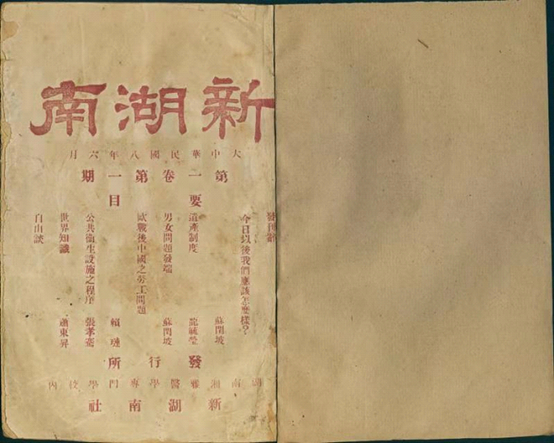 新湖南
大中華民國八年六月
第一卷第一期
要目
發刊辭
今日以後我們應該怎麼樣?
遺產制度 龍毓瑩
男女問題發端
歐戰後中國之勞工問題
公共衛生設施之程序 張孝騫
世界知識 蕭東昇
自由談
發行所
湖南湘雅醫學專門學校內
新湖南社